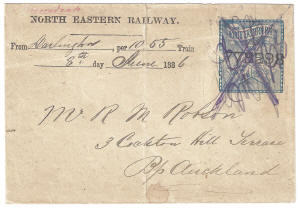 NORTH EASTERN RAILWAY.
From Darlington per 10.55 Train
8th day June 1886
Mr R M Robson
3 Hill Terrace
Bp Auckland